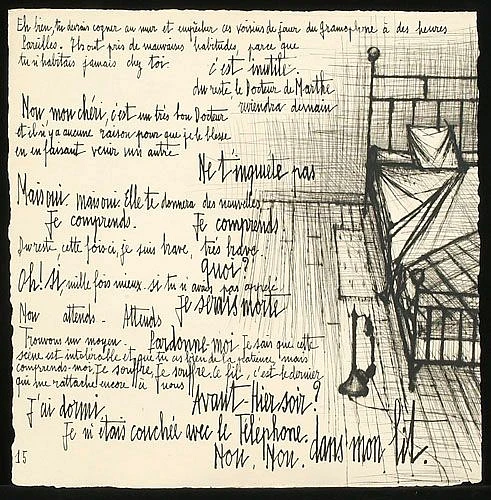 Eh bien, tu devrais cogner au mur et empêcher ces voisins de jouer du Gramophone à des heures
Pareilles. Ils ont pris de mauvaises habitudes, parce que
tu n'habitais jamais chez toi.
c'est inutile.
du reste, le Docteur de Marthe
reviendra demain
Non, mon chéri, c'est un très bon Docteur
et il n'y a aucune raison pour que je le blesse
en en faisant venir un autre.
Ne t'inquiète pas
Mais oui.. mais oui. Elle te donnera des nouvelles
Je comprends. Je comprends.
Du reste, cette fois-ci, je suis brave, très brave.
Quoi?
Oh! Si mille fois mieux. si tu n'avais pas appelé
Je serais morte
Non attends.. Attends
Trouvons un moyen. Pardonne-moi Je sais que cette
scène est intolérable et que tu as bien de la patience, mais
comprends-moi, Je souffre, Je souffre. Ce fil, c'est le dernier
qui me rattache encore à nous
Avant-Hier soir?
J'ai dormi.
Je m'étais couchée avec le Téléphone.
Non, Non. dans mon lit.
15